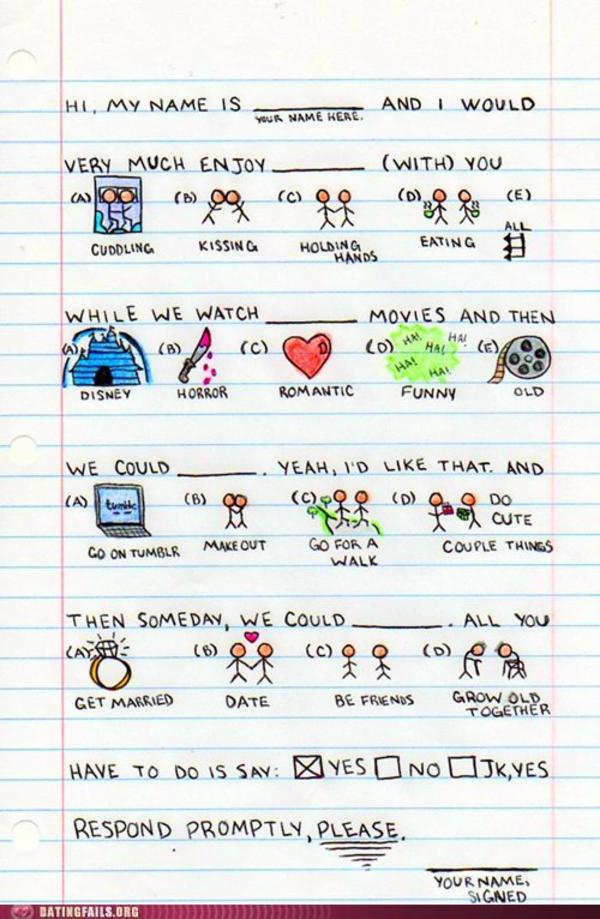 HI, MY NAME IS ________ AND I WOULD
YOUR NAME HERE.
VERY MUCH ENJOY ________ (WITH) YOU
(A) (B) (C) (D) (E)
ALL
CUDDLING KISSING HOLDING HANDS EATING
WHILE WE WATCH ________ MOVIES AND THEN
(A) (B) (C) (D) HA! HA! HA! HA! HA! (E)
DISNEY HORROR ROMANTIC FUNNY OLD
WE COULD ________. YEAH, I'D LIKE THAT. AND
(A) tumblr (B) (C) (D) DO CUTE COUPLE THINGS
GO ON TUMBLR MAKE OUT GO FOR A WALK
THEN SOMEDAY, WE COULD ________. ALL YOU
(A) (B) (C) (D)
GET MARRIED DATE BE FRIENDS GROW OLD TOGETHER
HAVE TO DO IS SAY: YES NO JK, YES
RESPOND PROMPTLY, PLEASE.
YOUR NAME, SIGNED
DATINGFAILS.ORG